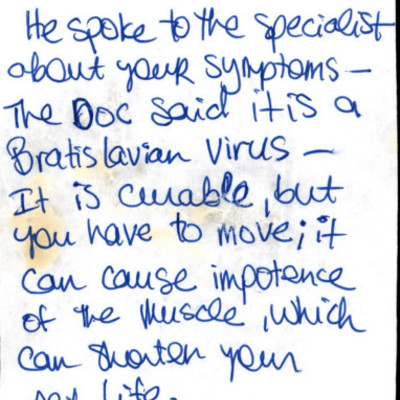 He spoke to the specialist
about your symptoms –
The Doc said it is a
Bratislavian virus –
It is curable, but
you have to move; it
can cause impotence
of the muscle, which
can shorten your
life.